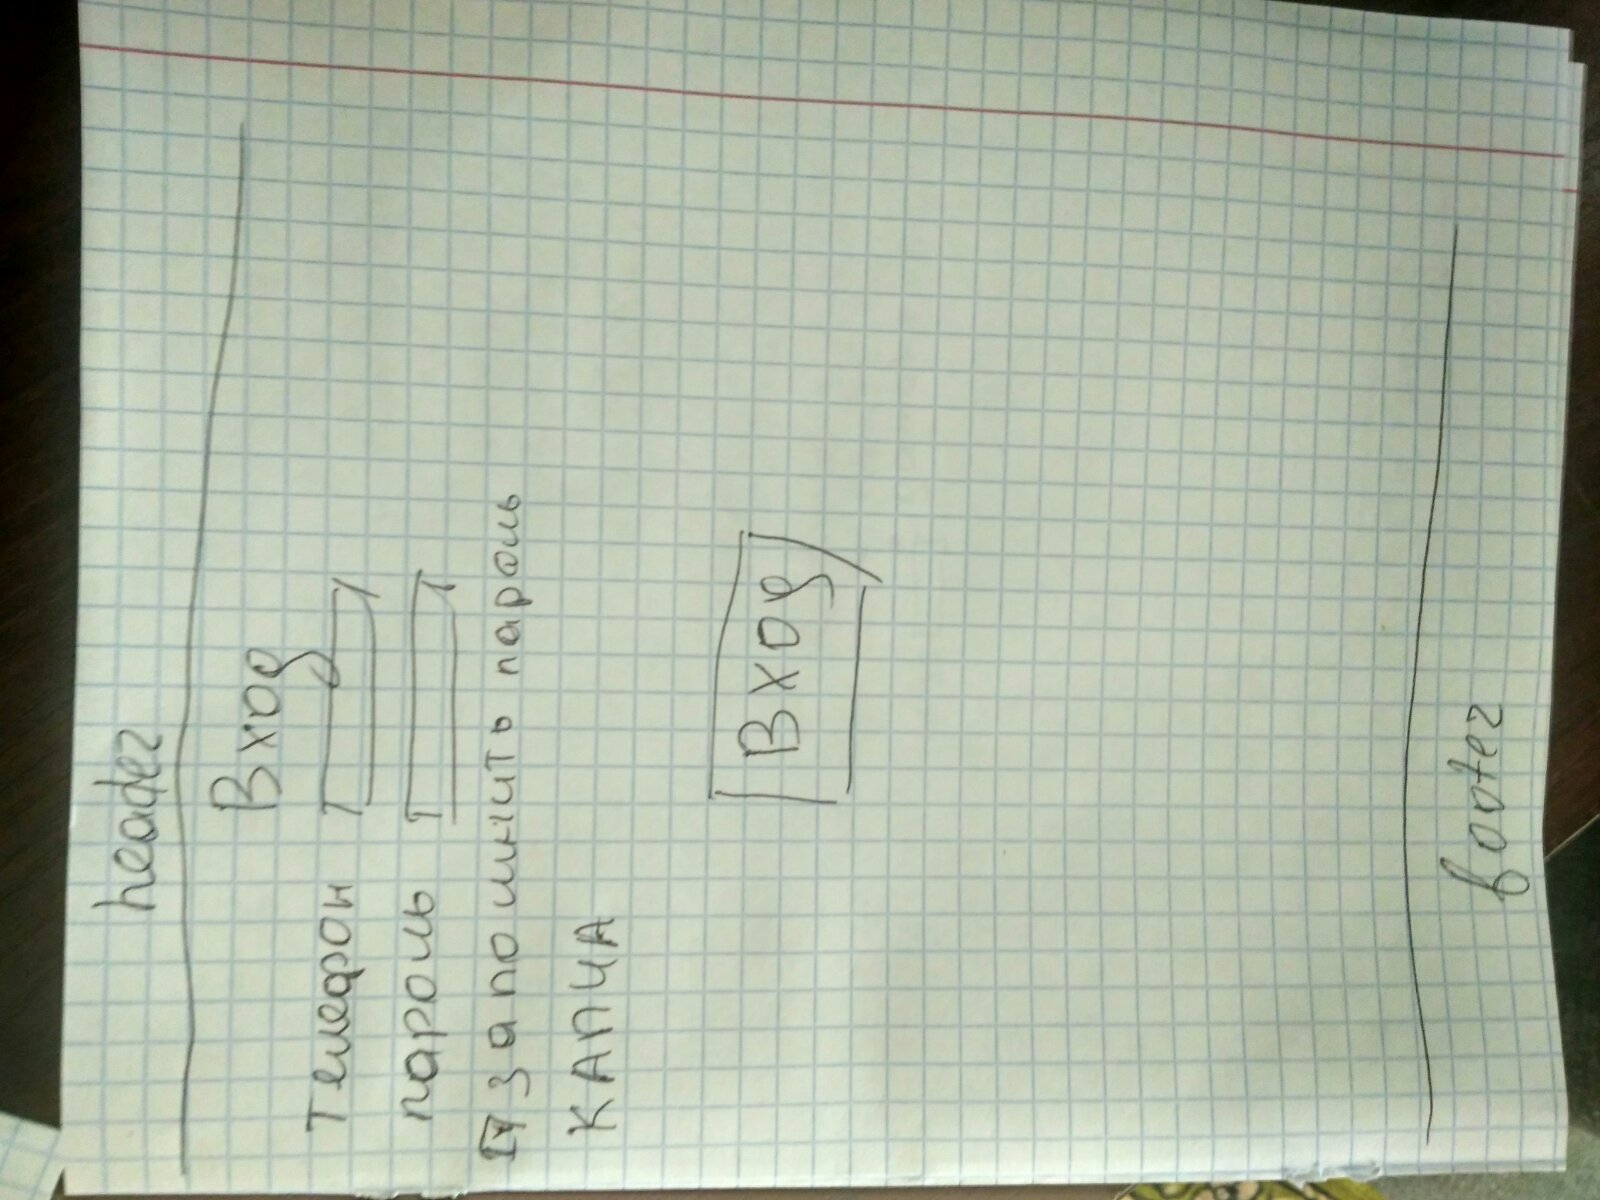 header
Вход
телефон
пароль
запомнить пароль
КАПЧА
Вход
footer